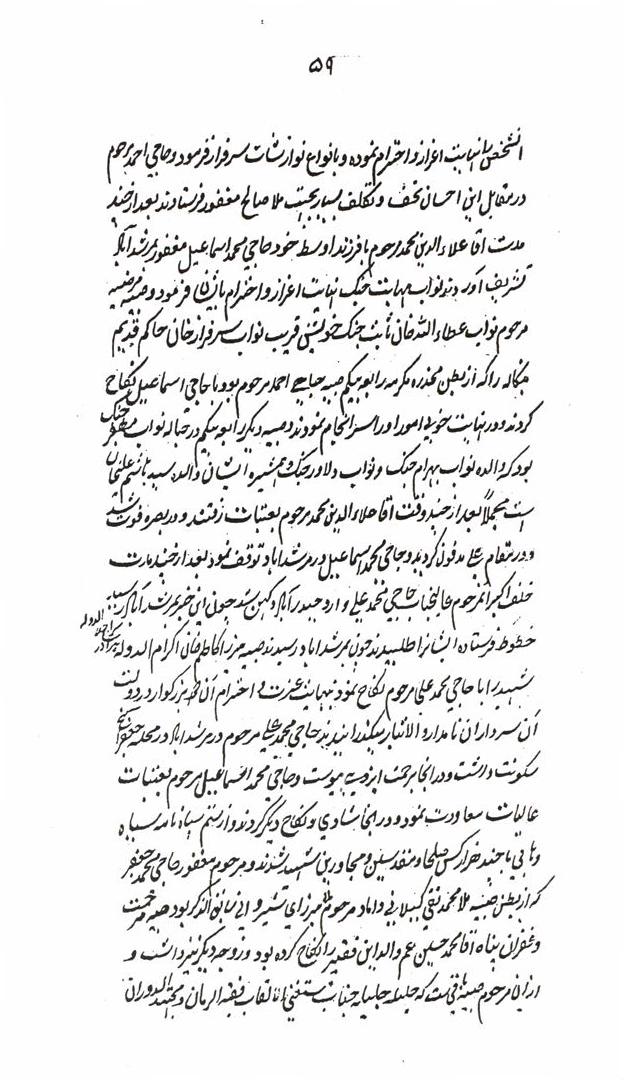 ۵۹
بنهایت اعزاز و احترام نموده و بانواع نوازشات سرفراز فرمود و حاجی احمد مرحوم
در مقابل این احسان تحف و تکلف بسیار بجهت ملا صالح مغفور فرستادند بعد از چند
مدت آقا علاء الدین محمد مرحوم با فرزند اوسط خود حاجی محمد اسماعیل مغفور بمرشد آباد
تشریف آوردند نواب مهابت جنک نهایت اعزاز و احترام بایشان فرمود و صبیه مرضیه
مرحوم نواب عطاء الله خان ثابت جنک خویش قریب نواب سرفراز خان حاکم قدیم
بنکاله را که از بطن مخدره مکرمه رابعه بیکم صبیه حاجی احمد مرحوم بود با حاجی اسماعیل نکاح
کردند و در نهایت خوبی امور او را سرانجام نمودند و صبیه دیکر رابعه بیکم در حباله نواب مظفر جنک
بود که والده نواب بهرام جنک و نواب دلاور جنک و همشیره ایشان والده سید هاشم علیخان
است مجملاً بعد از چند وقت آقا علاء الدین محمد مرحوم بعتبات رفتند و در بصره فوت شد
و در مقام علی مدفون کردیدند و حاجی محمد اسماعیل در مرشد آباد توقف نمود بعد از چند مدت
خلف اکبر آنمرحوم عالیجناب حاجی محمد علی وارد حیدر آباد دکهن شد چون این خبر بمرشد آباد رسید
خطوط فرستاده ایشانرا طلبیدند چون بمرشد آباد رسیدند صبیه میرزا کاظم خان اکرام الدوله
برادر سراج الدوله
شهید را با حاجی محمد علی مرحوم نکاح نمودند نهایت عزت و احترام آن بزرکوار در دولت
آن سرداران نامدار میکذرانیدند حاجی محمد علی مرحوم در مرشد آباد در محله جعفر کنج
سکونت داشت و در آنجا برحمت ایزدی پیوست و حاجی محمد اسماعیل مرحوم بعتبات
عالیات معاودت نمود و در آنجا شادی و نکاح دیکر کردند و از ستم سپاه نامه سیاه
وهابی با چند هزار کس صلحا و مقدسین و مجاورین شهید شدند و مرحوم مغفور حاجی محمد جعفر
که از بطن صبیه ملا محمد تقی کیلانی داماد مرحوم ملا میرزای شیروانی سابق الذکر بود صبیه مرحمت
و غفران پناه آقا محمد حسین عم والد این فقیر را نکاح کرده بود و زوجه دیکر نیز داشت و
از آن مرحوم صبیه باقیست که حلیله جلیله جناب مستغنی الالقاب فقیه الزمان و مجتهد الدوران